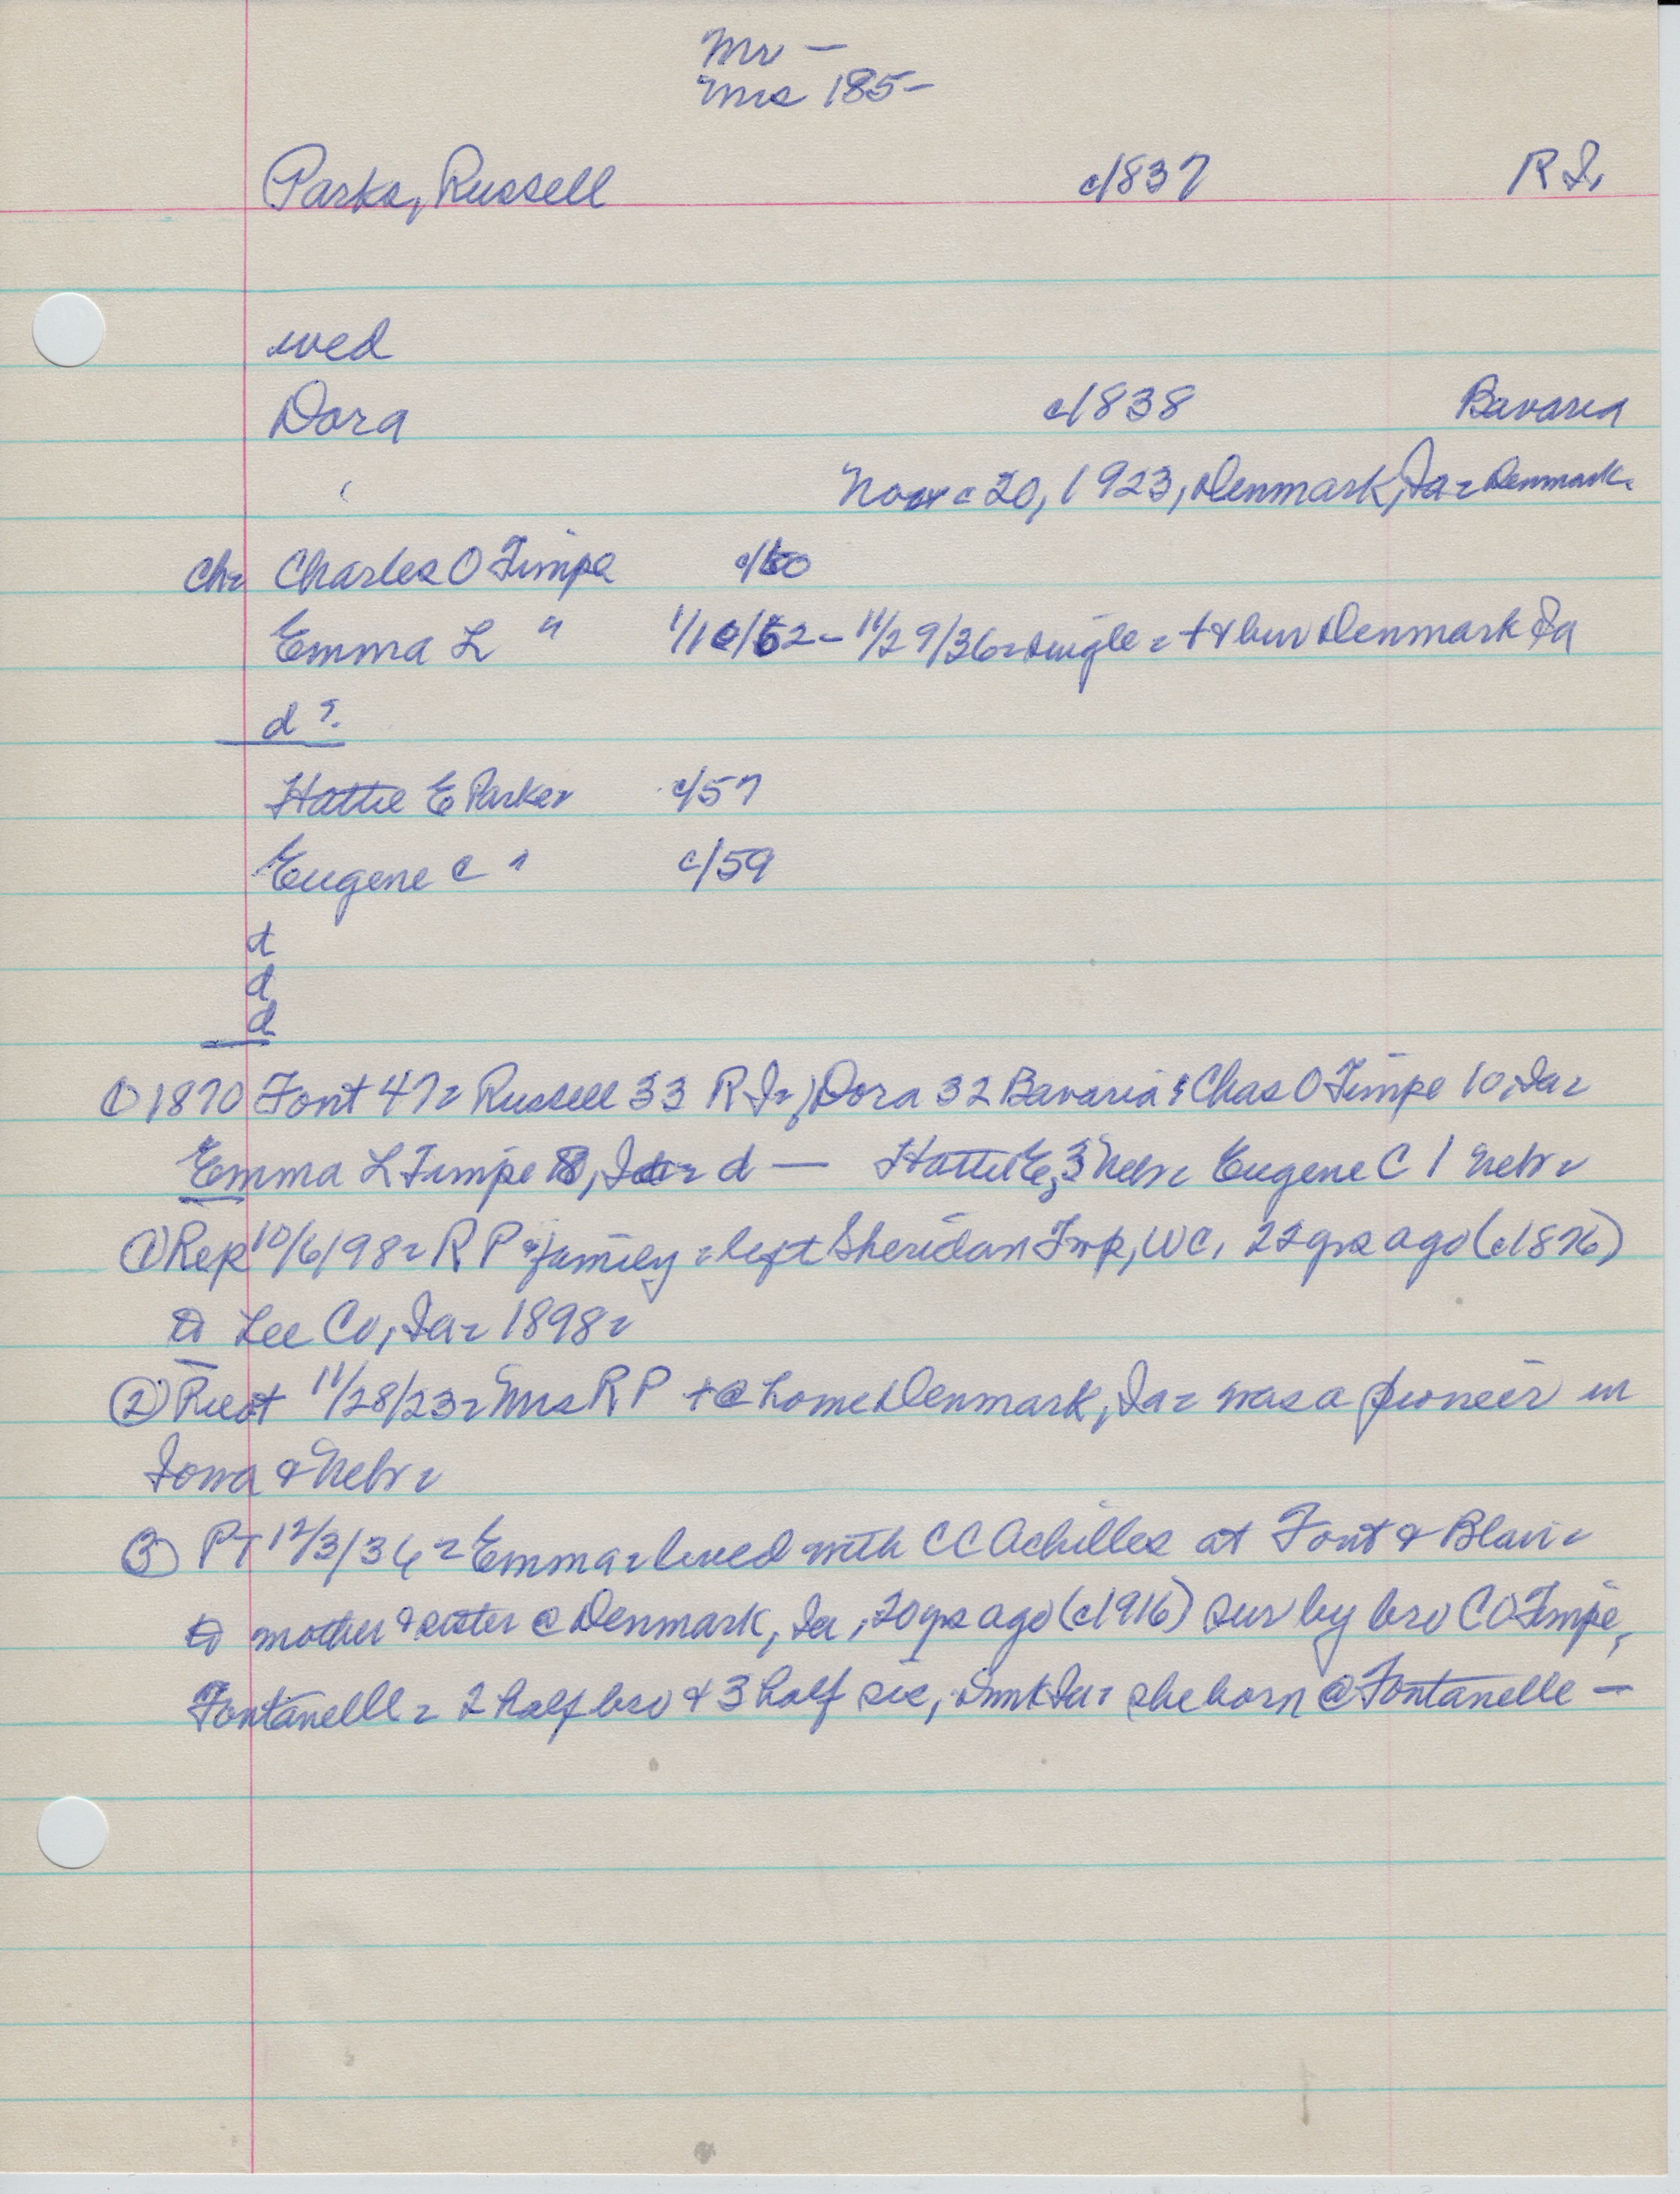 Mr —
Mrs 185-
Parks, Russell c1837 R I.
wed
Dora c1838 Bavaria
Nov c 20, 1923, Denmark, Ia - Denmark.
Ch- Charles O Timpe c/60
Emma L " 1/10/62 - 11/29/36 - single - + & bur Denmark Ia
d ?
Hattie E Parker c/57
Eugene C " c/59
d
d
d
① 1870 Font 47 - Russell 33 R I -, Dora 32 Bavaria & Chas O Timpe 10, Ia -
Emma L Timpe 8, d — Hattie E, 3 Nebr - Eugene C 1 Nebr -
① Rep 10/6/98 - R P & family - left Sheridan Twp, WC, 22 yrs ago (c1876)
to Lee Co, Ia - 1898 -
② 11/28/23 - Mrs R P + @ home Denmark, Ia - was a pioneer in
Iowa & Nebr -
③ PT 12/3/36 - Emma - lived with C C Achilles at Font & Blair -
to mother & sister @ Denmark, Ia, 20 yrs ago (c1916) sur by bro C O Timpe,
Fontanelle - 2 half bro & 3 half sis, Ia - she born @ Fontanelle —